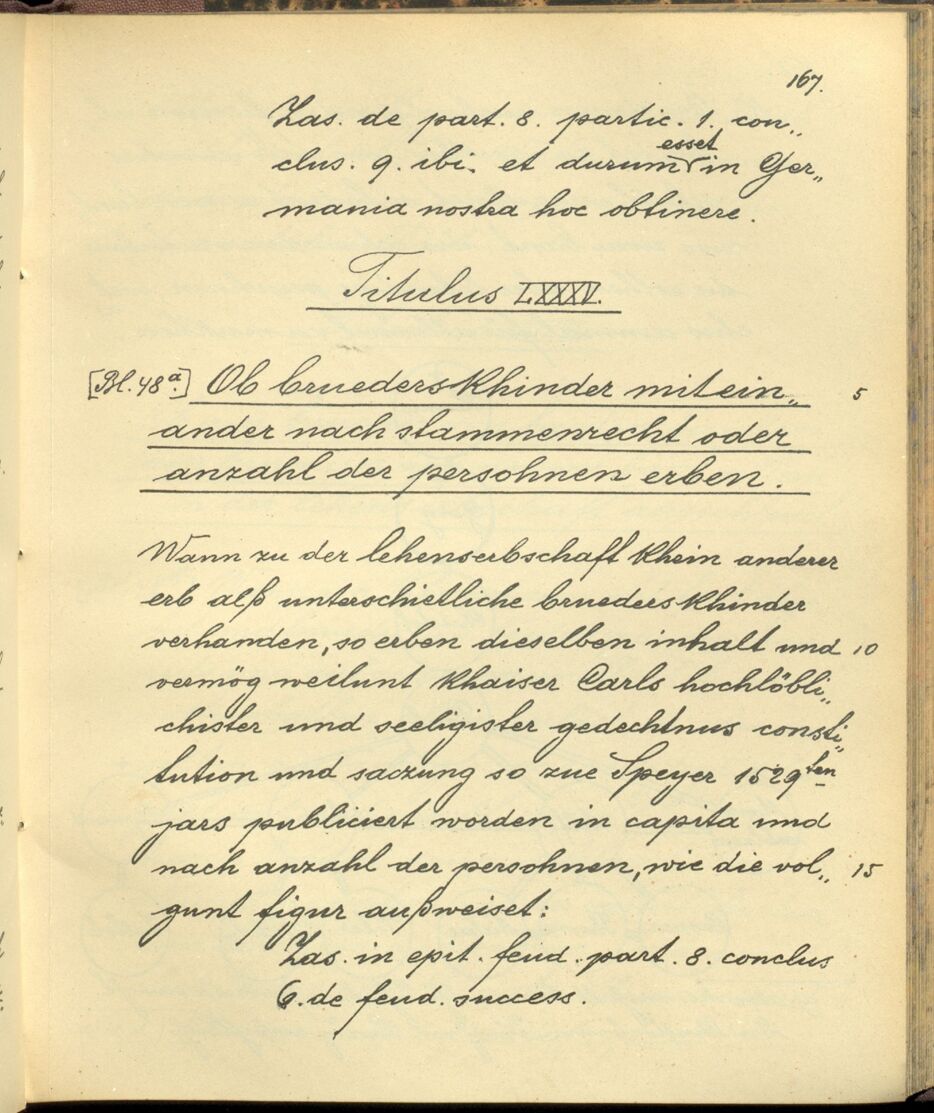 167.
Zas. de part. 8. partic. 1. con„
clus. 9. ibi. et durum esset in Ger„
mania nostra hoc obtinere.
Titulus LXXXV.
[Bl. 48a.] Ob brueders Khinder mitein„ 5
ander nach stammenrecht oder
anzahl der persohnen erben.
Wann zu der lehenserbschaft Khein anderer
erb alß unterschietliche brueders Khinder
verhanden, so erben dieselben inhalt und 10
vermög weilunt Khaiser Carls hochlöbli„
chister und seeligister gedechtnus consti„
tution und saczung so zue Speyer 1529ten
jars publiciert worden in capita und
nach anzahl der persohnen, wie die vol„ 15
gunt figur außweiset:
Zas. in epit. feud. part. 8. conclus
6. de feud. success.